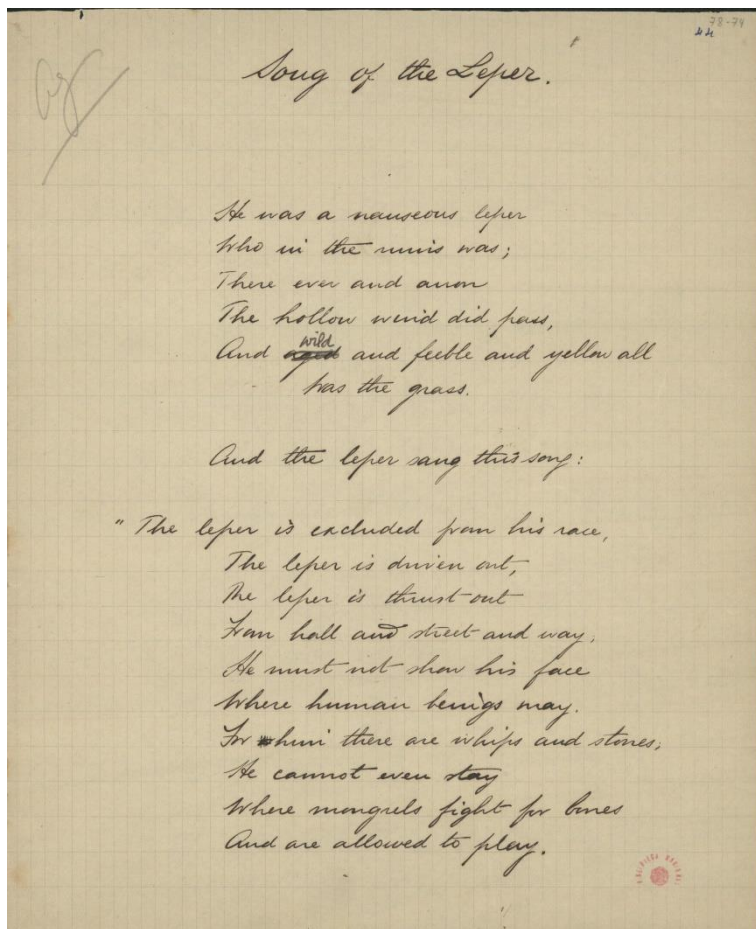 78-74
44
Song of the Leper.
He was a nauseous leper
Who in the ruins was;
There ever and anon
The hollow wind did pass,
wild
And aged and feeble and yellow all
Was the grass.
And the leper sang this song:
"The leper is excluded from his race,
The leper is driven out,
The leper is thrust out
From hall and street and way;
He must not show his face
Where human beings may.
For him there are whips and stones;
He cannot even stay
Where mongrels fight for bones
And are allowed to play.